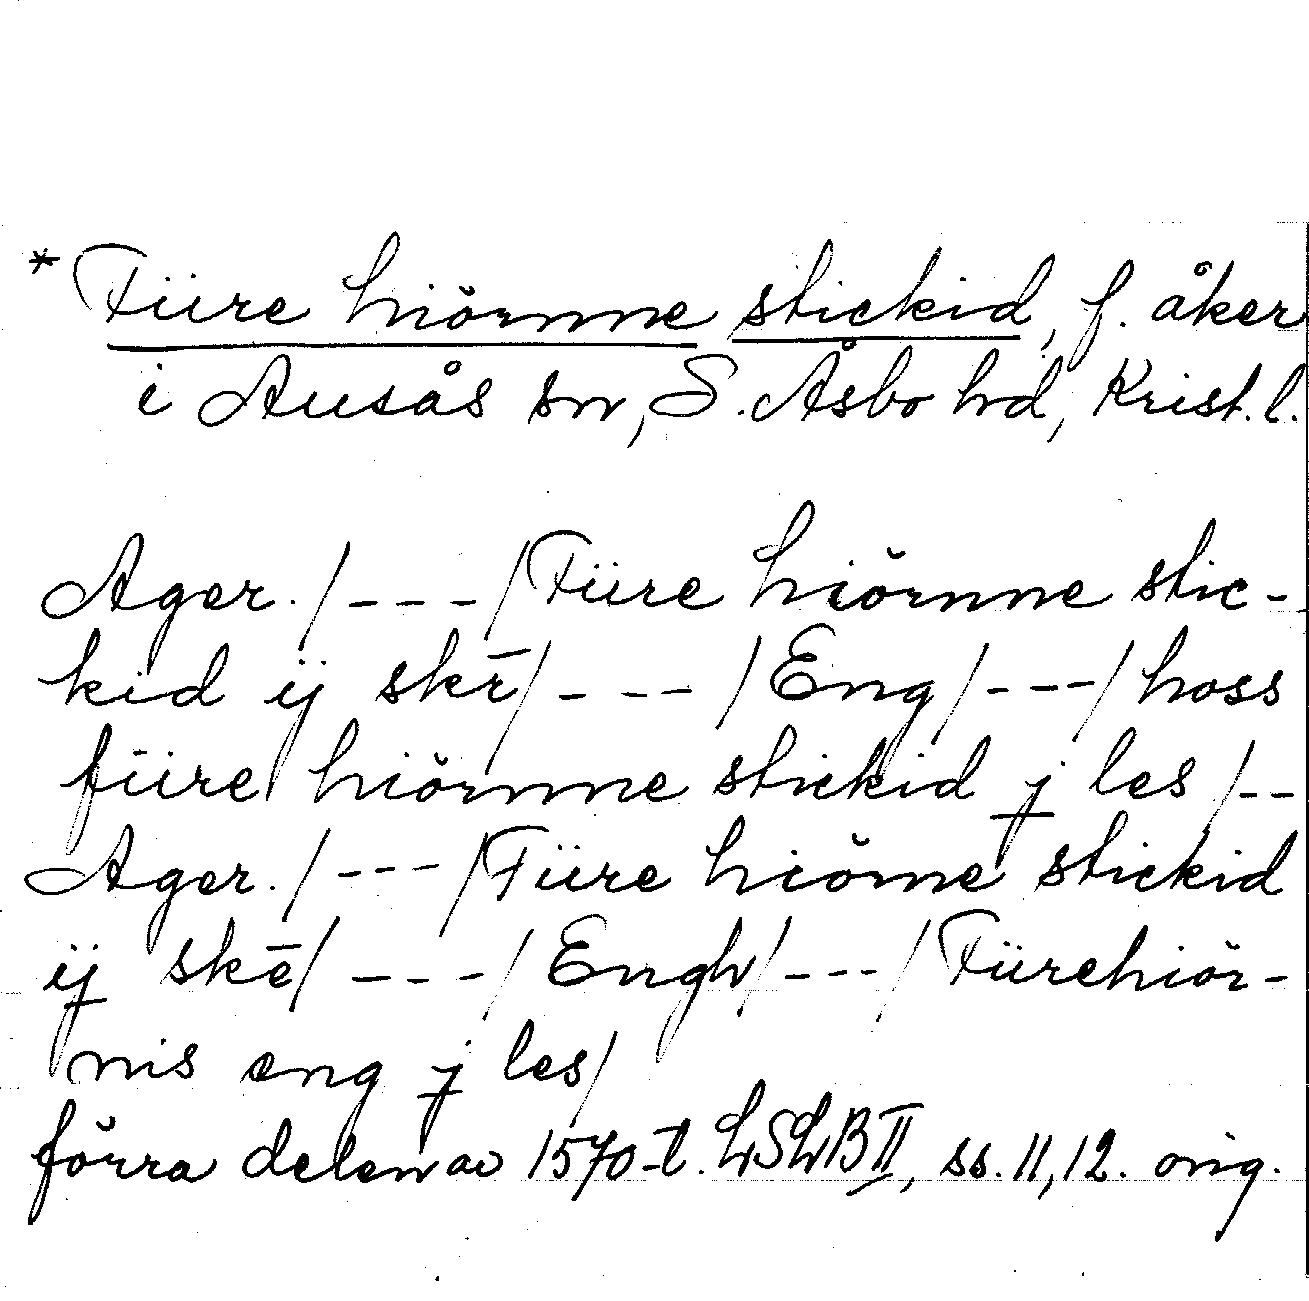 * Füre hiörnne stickid, f. åker
i Ausås sn, S. Åsbo hd, Krist. l.
Ager. /---/ Füre hiörnne stic-
kid ij skr̄/---/ Eng /---/ hoss
füre hiörnne stickid j les /--
Ager. /---/ Füre hiörne stickid
ij skē/---/ Engh/---/ Fürehiör-
nis eng j les/
förra delen av 1570-t. LSLB II, ss. 11, 12. orig.